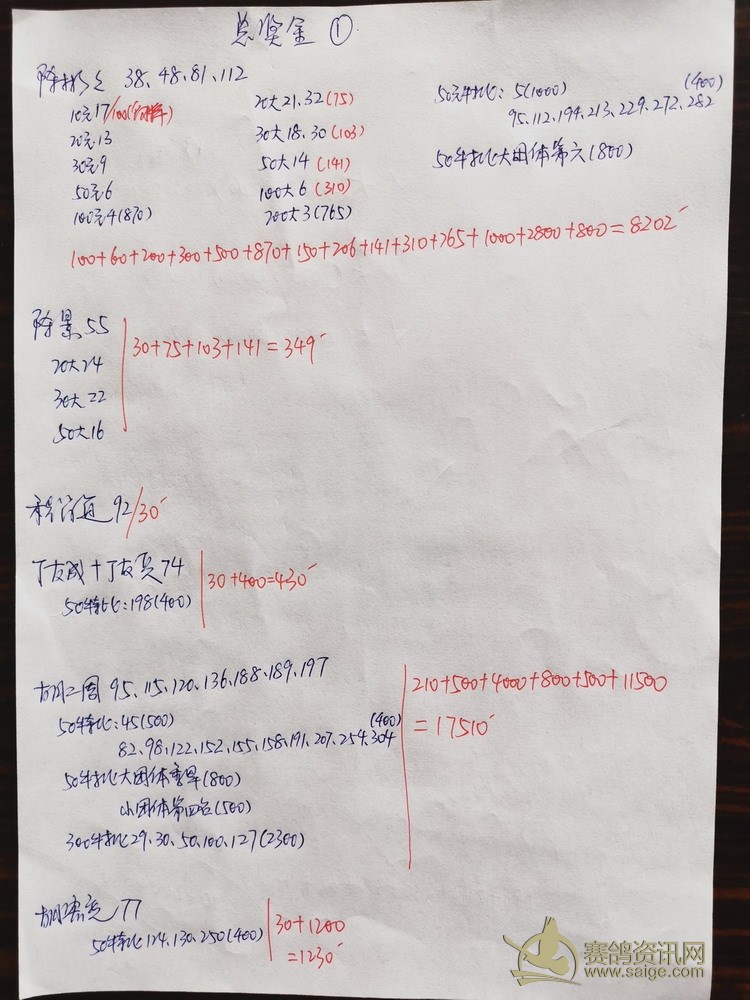 总奖金 ①
38、48、81、112
10元17/100
20元13
30元9
50元6
100元4(870)
20大21、32(75)
30大18、30(103)
50大14(141)
100大6(310)
200大3(765)
50元特比: 5(1000)
(400)
95、112、194、213、229、272、282
50特比大团体第六(800)
100+60+200+300+500+870+150+206+141+310+765+1000+2800+800=8202
55
20大24
30大22
50大16
30+75+103+141=349
92/30
丁友成+丁友 74
50特比:198(400)
30+400=430
95、115、120、136、188、189、197
50特比:45(500)
(400)
82、98、122、152、155、158、191、207、254、304
50特比大团体季军(800)
小团体第四名(500)
300特比29、30、50、100、127(2300)
210+500+4000+800+500+11500
=17510
77
50特比124、130、250(400)
30+1200
=1230
赛鸽资讯网
www.saige.com